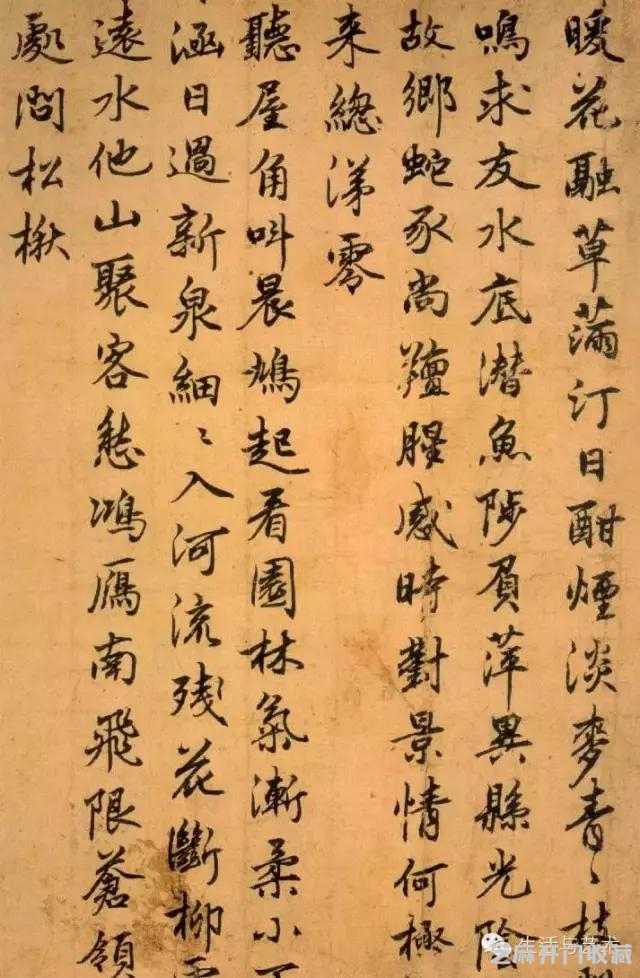 暖花融草滿汀日酣煙淡麥青〻
鳴求友水底潛魚陟負萍異縣光陰
故鄉蛇豕尚羶腥感時對景情何極
来總涕零
聽屋角叫晨鳩起看園林氣漸柔小
涵日過新泉細〻入河流残花斷柳
遠水他山聚客愁鴻雁南飛限蒼領
處問松楸
生活与艺术
麻开门收藏